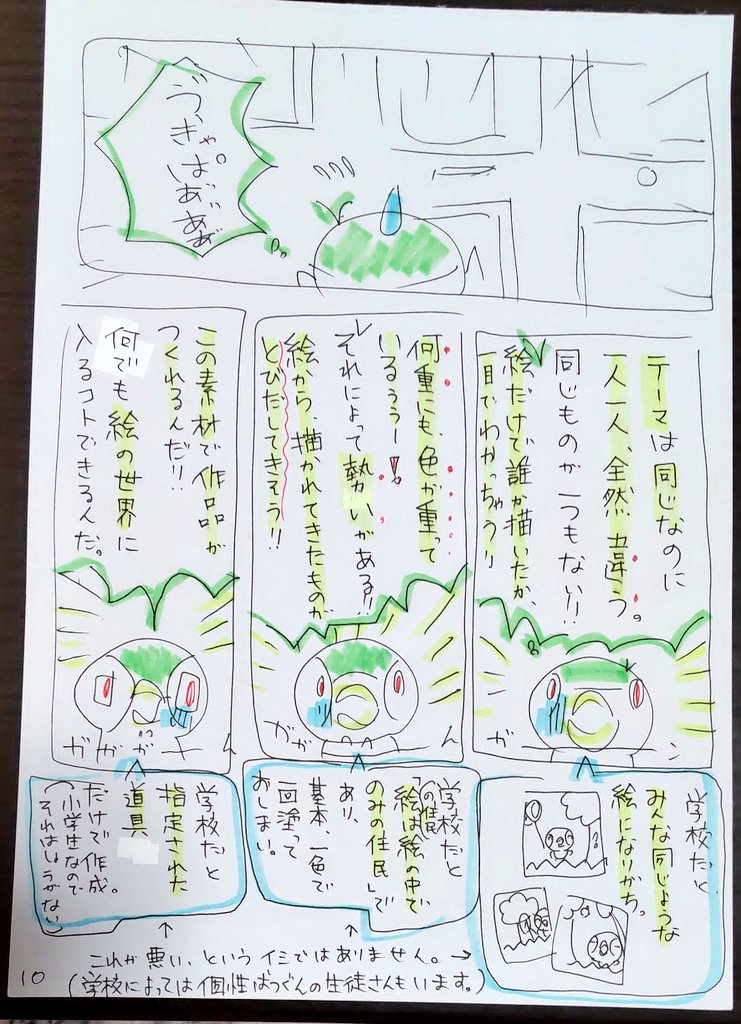 う、きゃ
ぱぁぁぁ
テーマは同じなのに
一人一人、全然違う。
同じものが一つもない!!
絵だけで誰が描いたか、
一目でわかっちゃう!!
何重にも、色が重って
いるぅぅー!
それによって勢いがある!!
絵から、描かれてきたものが
とびだしてきそう!!
この素材で作品が
つくれるんだ!!
何でも絵の世界に
入るコトできるんだ。
ガ
ン
ガガ
ん
ガガガ
ん
学校だと
みんな同じような
絵になりがち。
学校だと
(の住民)
「絵は絵の中で
のみの住民」で
あり、
基本、一色で
一回塗って
おしまい。
学校だと
指定された
道具
だけで作成。
(小学生なので
それはしょうがない)
これが悪い、というイミではありません。→
(学校によっては個性ばつぐんの生徒さんもいます。)
10